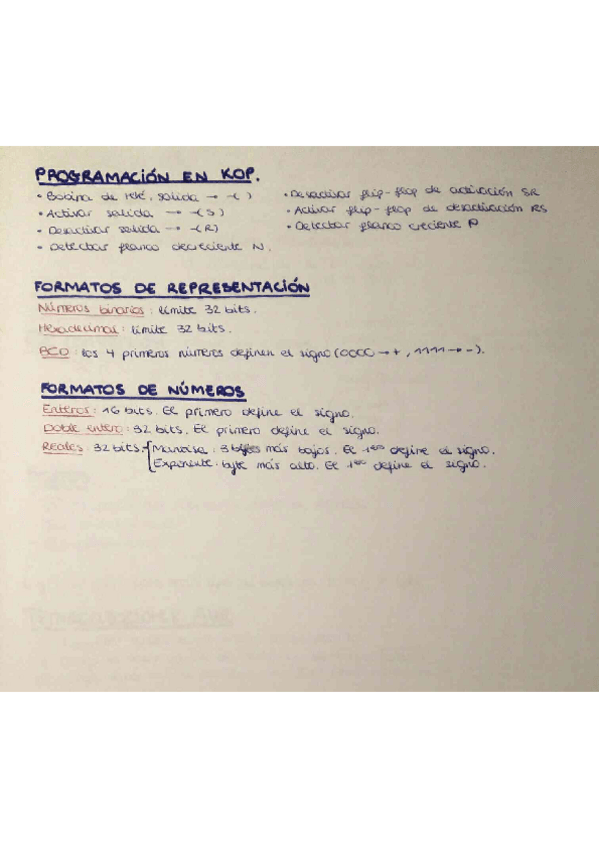 PROGRAMACIÓN EN KOP.
• Bobina de relé, salida → -( )
• Activar salida → -(S)
• Desactivar salida → -(R)
• Detectar flanco decreciente N.
• Desactivar flip-flop de activación SR
• Activar flip-flop de desactivación RS
• Detectar flanco creciente P
FORMATOS DE REPRESENTACIÓN
Números binarios: límite 32 bits.
Hexadecimal: límite 32 bits.
BCD: los 4 primeros números definen el signo (0000 → +, 1111 → -).
FORMATOS DE NÚMEROS
Enteros: 16 bits. El primero define el signo.
Doble entero: 32 bits. El primero define el signo.
Reales: 32 bits. Mantisa: 3 bytes más bajos. El 1ero define el signo.
Exponente: byte más alto. El 1ero define el signo.